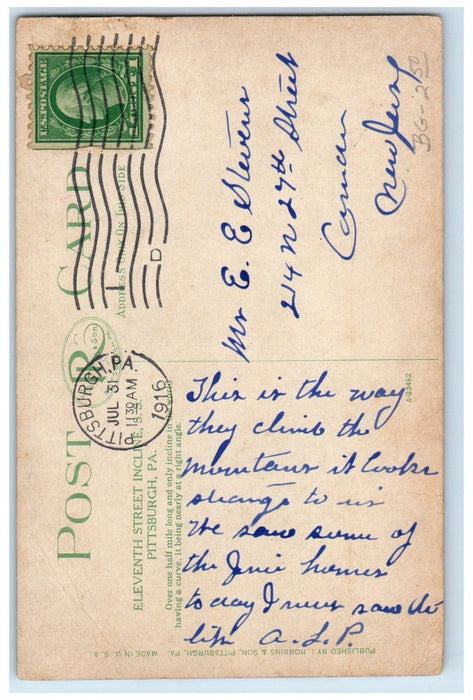 U.S. POSTAGE
1 CENT 1
POST CARD
ADDRESS ONLY ON THIS SIDE
PITTSBURGH, PA.
JUL 31
11 30 AM
1916
D
ELEVENTH STREET INCLINE,
PITTSBURGH, PA.
Over one half mile long and only incline in the
having a curve, it being nearly at a right angle.
Mr E. E Stevens
214 N 27th Street
Camden
New Jersey
BG-250
A-23462
This is the way
they climb the
mountains it looks
strange to us
We saw some of
the homes
to day I never saw the
like A. L. P.
PUBLISHED BY I. ROBBINS & SON, PITTSBURGH, PA. MADE IN U. S. A